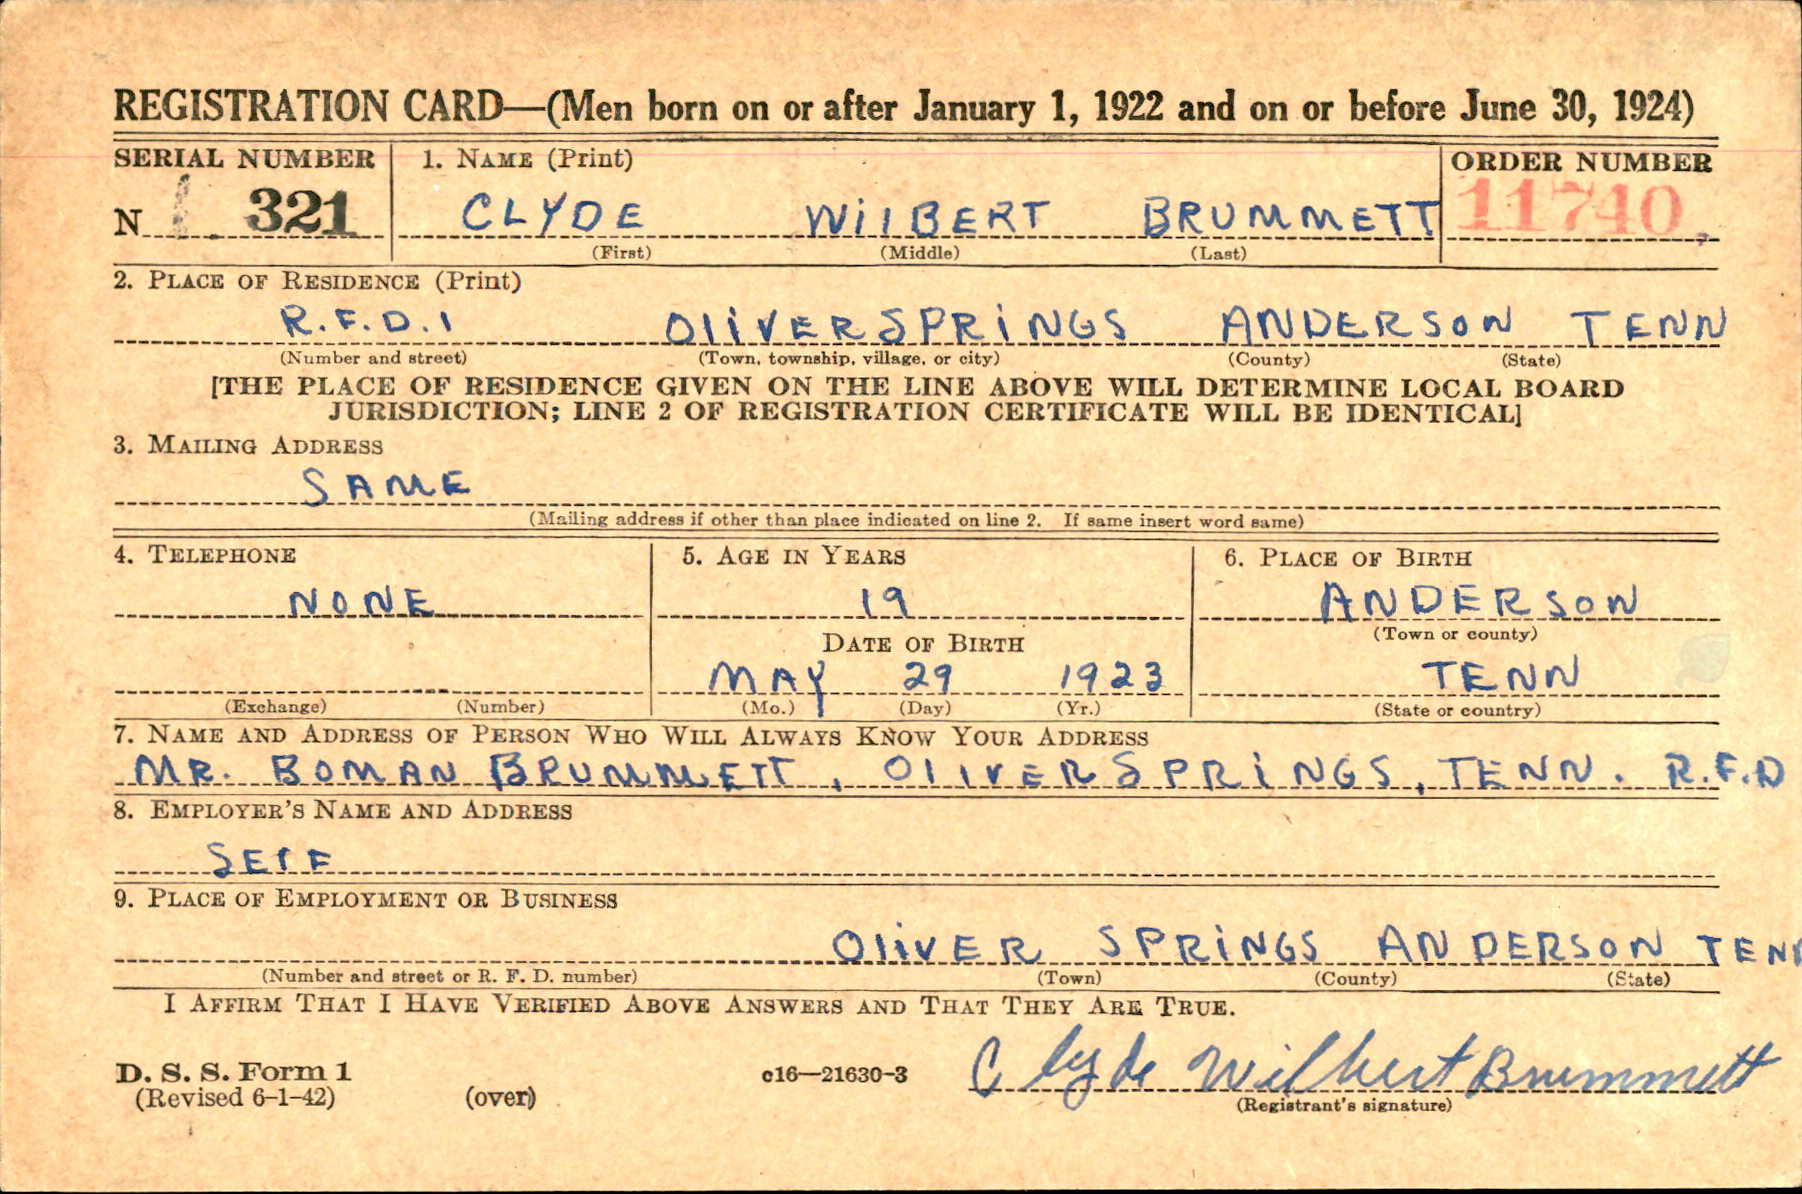 REGISTRATION CARD—(Men born on or after January 1, 1922 and on or before June 30, 1924)
SERIAL NUMBER 1. NAME (Print) ORDER NUMBER
N 321 CLYDE WilBERT BRUMMETT 11740
(First) (Middle) (Last)
2. PLACE OF RESIDENCE (Print)
R.F.D.1 OliVER SPRiNGS ANDERSON TENN
(Number and street) (Town, township, village, or city) (County) (State)
[THE PLACE OF RESIDENCE GIVEN ON THE LINE ABOVE WILL DETERMINE LOCAL BOARD
JURISDICTION; LINE 2 OF REGISTRATION CERTIFICATE WILL BE IDENTICAL]
3. MAILING ADDRESS
SAME
(Mailing address if other than place indicated on line 2. If same insert word same)
4. TELEPHONE 5. AGE IN YEARS 6. PLACE OF BIRTH
NONE 19 ANDERSON
(Town or county)
DATE OF BIRTH
MAY 29 1923 TENN
(Exchange) (Number) (Mo.) (Day) (Yr.) (State or country)
7. NAME AND ADDRESS OF PERSON WHO WILL ALWAYS KNOW YOUR ADDRESS
MR. BOMAN BRUMMETT, OliVER SPRiNGS, TENN. R.F.D
8. EMPLOYER'S NAME AND ADDRESS
SElF
9. PLACE OF EMPLOYMENT OR BUSINESS
OliVER SPRiNGS ANDERSON TENN
(Number and street or R. F. D. number) (Town) (County) (State)
I AFFIRM THAT I HAVE VERIFIED ABOVE ANSWERS AND THAT THEY ARE TRUE.
D. S. S. Form 1 c16—21630-3 Clyde Wilbert Brummett
(Revised 6-1-42) (over) (Registrant's signature)